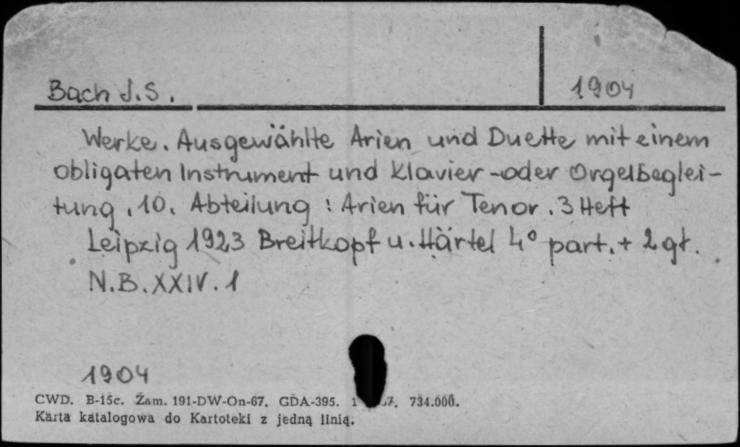 Bach J.S. 1904
Werke. Ausgewählte Arien und Duette mit einem
obligaten Instrument und Klavier-oder Orgelbeglei-
tung. 10. Abteilung: Arien für Tenor. 3 Heft
Leipzig 1923 Breitkopf u. Härtel 4° part. + 2 gł.
N.B. XXIV. 1
1904
CWD. B-15c. Zam. 191-DW-On-67. GDA-395. 734.000.
Karta katalogowa do Kartoteki z jedną linią.